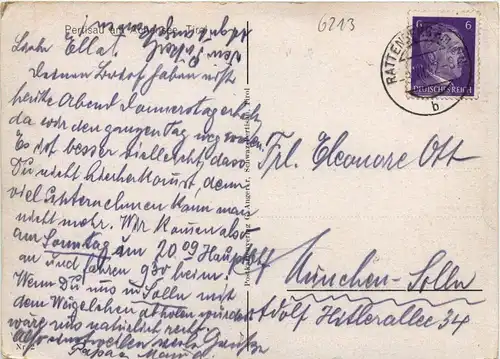 Pertisau am Achensee, Tirol
6213
6
DEUTSCHES REICH
RATTENBERG
b
Liebe Ella!
Deinen Brief haben wir
heute Abend Donnerstag erhalt.
da wir den ganzen Tag weg waren.
Es ist besser vielleicht, dass
Du nicht hierher kommst, denn
viel unternehmen kann man
nicht mehr. Wir kommen also
am Sonntag um 20.09 Hauptbf.
an und fahren gbr heim.
Wenn Du uns in Solln mit
dem Wägelchen abholen würdest
wäre uns natürlich recht.
Also inzwischen viele Grüße
Papa u. Mama
Frl. Eleonore Ott
München-Solln
Adolf Hitlerallee 34
Postkartenverlag G. Angerer, Schwaz, Tirol
Nr.